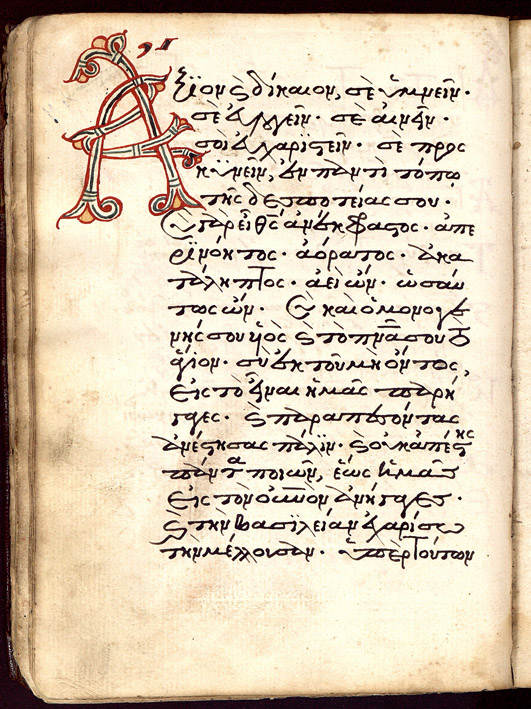 Ἄξιον ϗ δίκαιον, σὲ ὑμνεῖν·
σὲ εὐλογεῖν· σὲ αἰνεῖν·
σοὶ εὐχαριστεῖν· σὲ προσ
κυνεῖν, ἐν παντὶ τόπω
τῆς δεσποτείας σου·
Σὺ γὰρ εἶ θς ἀνέκφραστος· ἀπε
ρινόητος· ἀόρατος· ἀκα
τάληπτος· ἀεὶ ὢν· ὡσαύ
τως ὤν· Σὺ καὶ ὁ μονογε
νής σου υἱὸς ϗ τὸ πνᾶ σου τὸ
ἅγιον· σὺ ἐκ τοῦ μὴ ὄντος,
εἰς τὸ εἶναι ἡμᾶς παρή
γαγες· ϗ παραπεσόντας
ἀνέστησας πάλιν· ϗ οὐκ ἀπέστης
πάντα ποιῶν, ἕως ἡμᾶς
εἰς τὸν οὐνὸν ἀνήγαγες·
ϗ τὴν βασιλείαν ἐχαρίσω
τὴν μέλλουσαν· ὑπὲρ τούτων